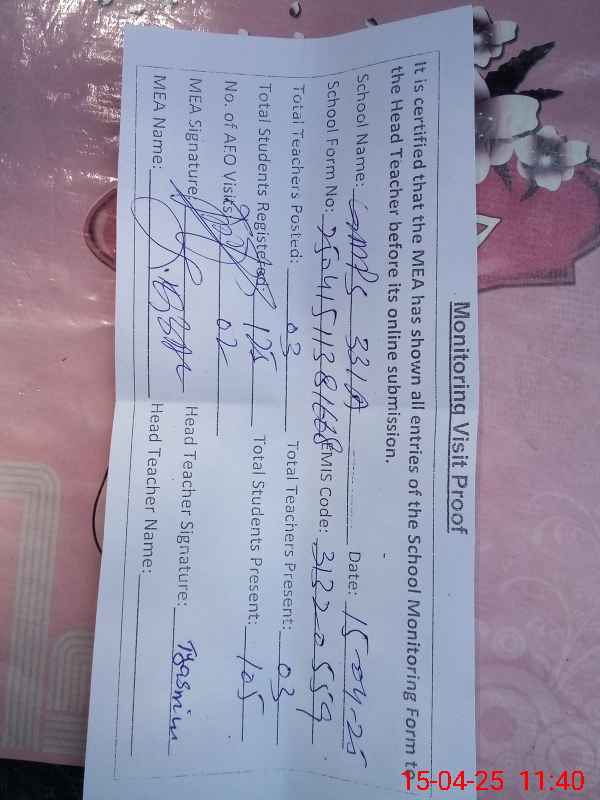 Monitoring Visit Proof
It is certified that the MEA has shown all entries of the School Monitoring Form to
the Head Teacher before its online submission.
School Name: GMPS 331A Date: 15-04-25
School Form No: EMIS Code: 31220559
Total Teachers Posted: 03 Total Teachers Present: 03
Total Students Registered: 125 Total Students Present: 105
No. of AEO Visits: 02
MEA Signature Head Teacher Signature: Yasmin
MEA Name: Head Teacher Name:
15-04-25 11:40